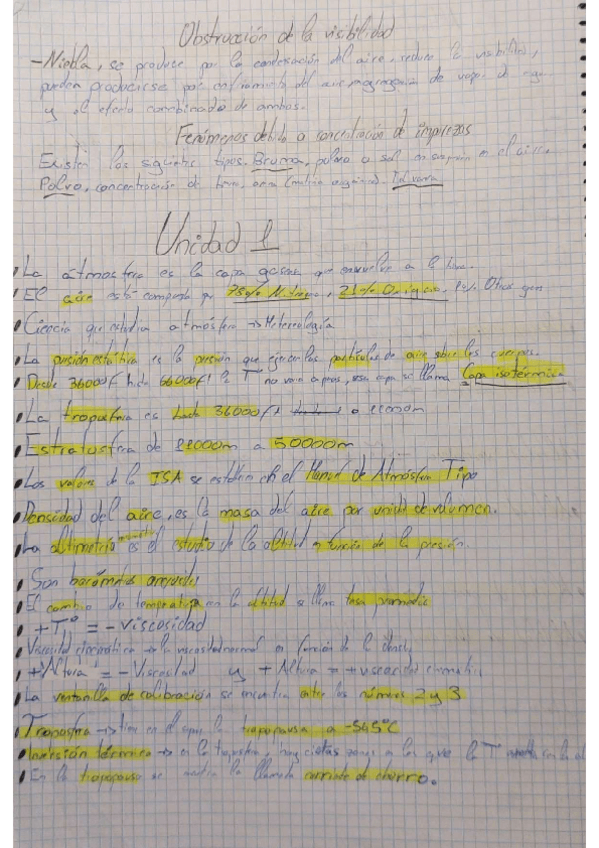 Obstrucción de la visibilidad
- Niebla, se produce por la condesación del aire, reduce la visibilidad,
pueden producirse por enfriamiento del aire, de vapor de agua
y el efecto combinado de ambos.
Fenómenos debido a concentración de impurezas
Existen los siguientes tipos. Bruma, polvo o sal en suspensión en el aire.
Polvo, concentración de
Unidad 1
La átmosfera es la capa gaseosa que envuelve a la tierra.
El aire está compuesto por 78% Nitrogeno, 21% Oxigeno, 1% Otros gases
Ciencia que estudia atmósfera → Meteorología
La presión estática es la presión que ejercen las partículas de aire sobre los cuerpos.
Desde 36000ft hasta 66000ft la T no varia apenas, esa capa se llama Capa isotérmica
La troposfera es hasta 36000ft o 11000m
Estratosfera de 11000m a 50000m
Los valores de la ISA se establecen en el Manual de Atmósfera Tipo
Densidad del aire, es la masa del aire por unidad de volumen.
La altimetría es el estudio de la altitud en función de la presión.
Son barómetros aneroides
El cambio de temperatura en la altitud se llama tasa
+Tº = - viscosidad
Viscosidad cinematica → la viscosidad normal en función de la
+Altura = - Viscosidad y + Altura = + viscosidad cinematica
La ventanilla de calibración se encuentra entre los números 2 y 3
→ tiene en el la tropopausa a -56'5ºC
Inversión térmica → en la troposfera, hay ciertas zonas en las que la T
En la tropopausa se la llamada corriente de chorro.